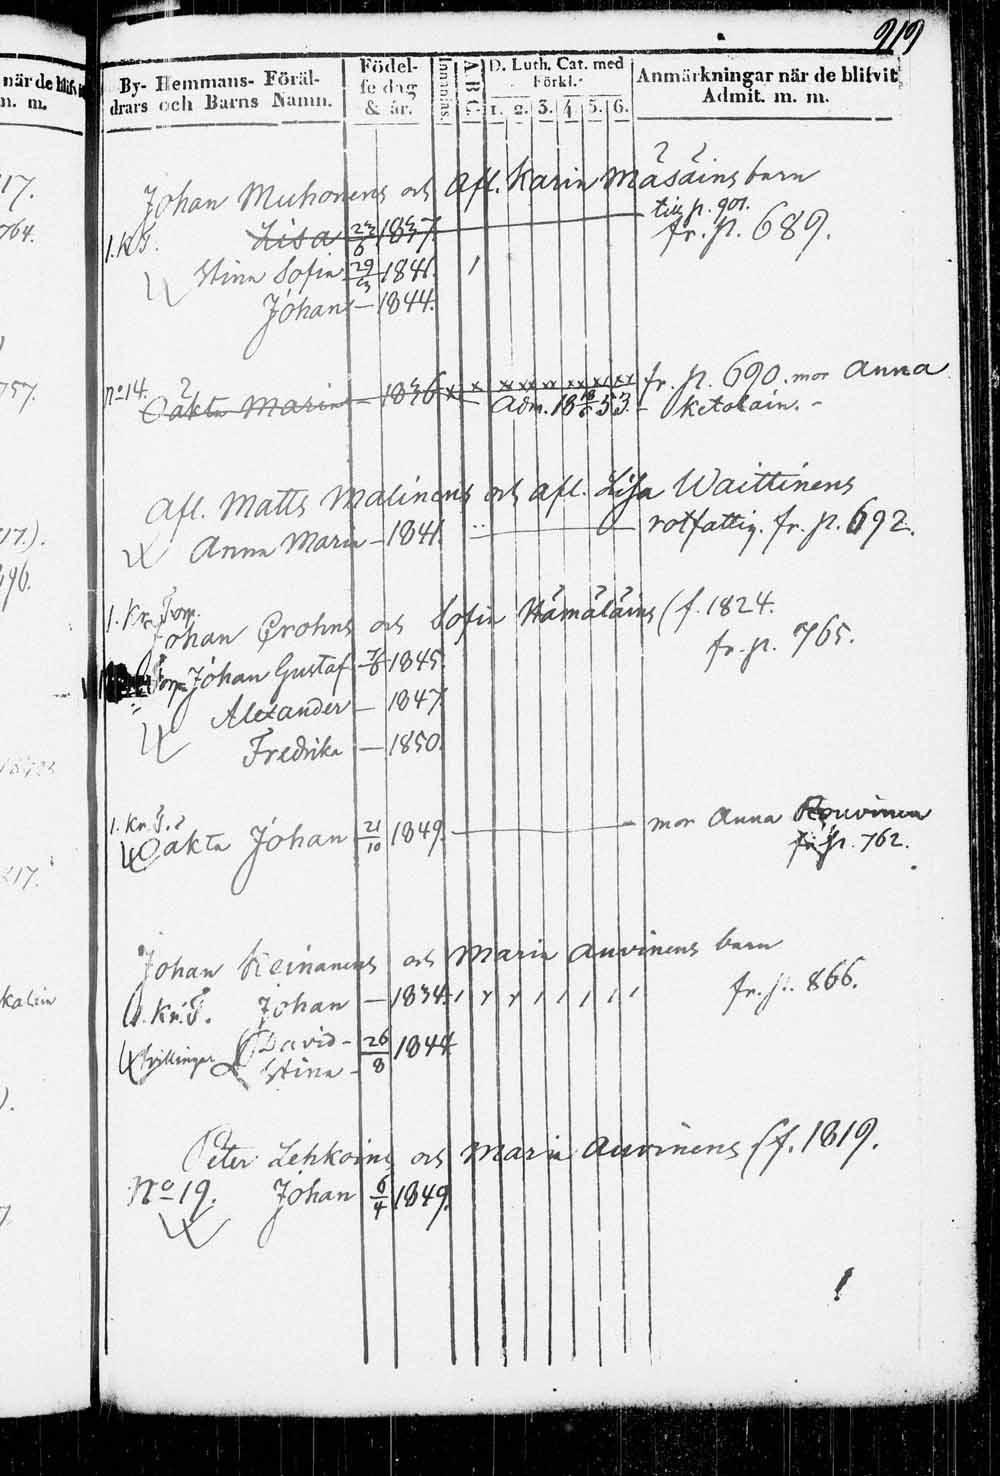 919
By- Hemmans- Föräl-
drars och Barns Namn.
Födel-
se dag
& år.
Innanläs.
A B C.
D. Luth. Cat. med
Förkl.
1. 2. 3. 4. 5. 6.
Anmärkningar när de blifvit
Admit. m. m.
när de blifvit
m. m.
17.
764.
Johan Muhonens och Afl. Karin Mäsäins barn
till p. 901.
1. Kr. T. Lisa 23/6 1837. fr. p. 689.
Stina Sofia 29/3 1841. 1
Johan — 1844.
757.
No 14. Oäkta Maria — 1836 x x xx xx xx xx xx xx fr. p. 690. mor Anna
Adm. 18 18/6 53. — Ketolain. -
17.).
Afl. Matts Malinens och afl. Lisa Waittinens
Anna Maria — 1841. rotfattig. fr. p. 692.
496.
1. Kr. Torp.
Johan Grohns och Sofia Hämäläins (f. 1824.
fr. p. 765.
Torp. Johan Gustaf 7/6 1845
Alexander — 1847
Fredrika — 1850.
1. Kr. T.
Oäkta Johan 21/10 1849. — mor Anna Rouvinen
fr. p. 762.
217.
Johan Keinanens och Maria Auvinens barn
1. Kr. T. Johan — 1834. fr. p. 866.
kalin
tvillingar David — 26/8 1844
Stina —
).
Peter Lehkoins och Maria Auvinens (f. 1819.
No 19. Johan 6/4 1849.
7.